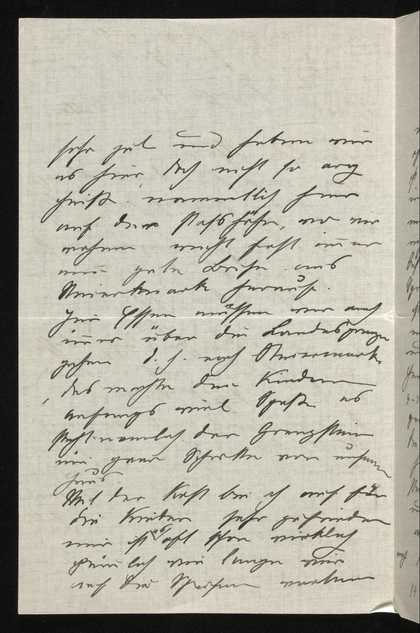 sehr gut und haben wir
es hier doch nicht so arg
heiß. namentlich hier
auf der Passhöhe, wo wir
wohnen weht fast immer
eine gute Brise aus
Steiermark herauf.
Zum Essen müssen wir auch
immer über die Landesgrenze
gehen d. h. nach Steiermark
das machte den Kindern
anfangs viel Spaß es
steht nämlich der Grenzstein
ein paar Schritte von unserem
Haus
Mit der Kost bin ich auch für
die Kinder sehr zufrieden
mir ist es oft schon wirklich
peinlich wie lange wir
auf die Speisen warten